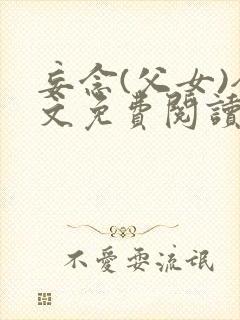 妄念(父女)
文免費閱讀
不愛耍流氓